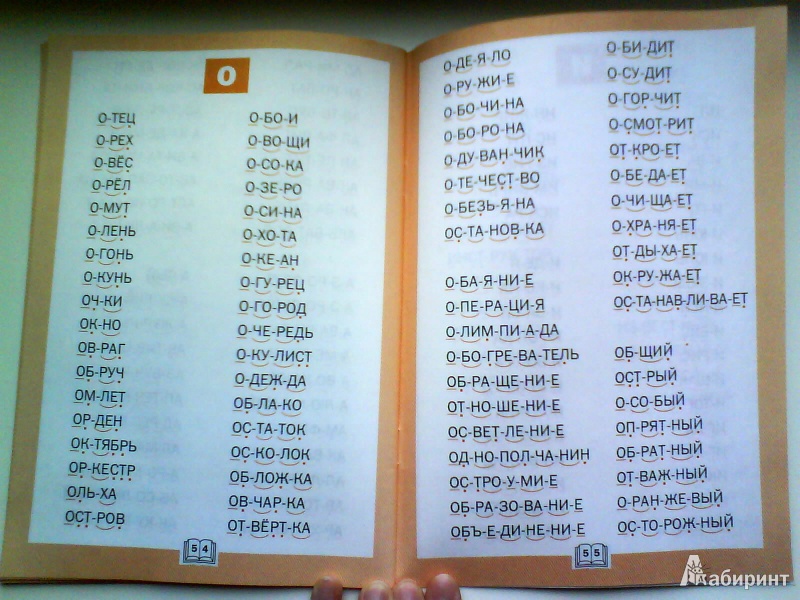 О
О-ТЕЦ
О-РЕХ
О-ВЁС
О-РЁЛ
О-МУТ
О-ЛЕНЬ
О-ГОНЬ
О-КУНЬ
ОЧ-КИ
ОК-НО
ОВ-РАГ
ОБ-РУЧ
ОМ-ЛЕТ
ОР-ДЕН
ОК-ТЯБРЬ
ОР-КЕСТР
ОЛЬ-ХА
ОСТ-РОВ
О-БО-И
О-ВО-ЩИ
О-СО-КА
О-ЗЕ-РО
О-СИ-НА
О-ХО-ТА
О-КЕ-АН
О-ГУ-РЕЦ
О-ГО-РОД
О-ЧЕ-РЕДЬ
О-КУ-ЛИСТ
О-ДЕЖ-ДА
ОБ-ЛА-КО
ОС-ТА-ТОК
ОС-КО-ЛОК
ОБ-ЛОЖ-КА
ОВ-ЧАР-КА
ОТ-ВЁРТ-КА
54
О-ДЕ-Я-ЛО
О-РУ-ЖИ-Е
О-БО-ЧИ-НА
О-БО-РО-НА
О-ДУ-ВАН-ЧИК
О-ТЕ-ЧЕСТ-ВО
О-БЕЗЬ-Я-НА
ОС-ТА-НОВ-КА
О-БА-Я-НИ-Е
О-ПЕ-РА-ЦИ-Я
О-ЛИМ-ПИ-А-ДА
О-БО-ГРЕ-ВА-ТЕЛЬ
ОБ-РА-ЩЕ-НИ-Е
ОТ-НО-ШЕ-НИ-Е
ОС-ВЕТ-ЛЕ-НИ-Е
ОД-НО-ПОЛ-ЧА-НИН
ОС-ТРО-У-МИ-Е
ОБ-РА-ЗО-ВА-НИ-Е
ОБЪ-Е-ДИ-НЕ-НИ-Е
О-БИ-ДИТ
О-СУ-ДИТ
О-ГОР-ЧИТ
О-СМОТ-РИТ
ОТ-КРО-ЕТ
О-БЕ-ДА-ЕТ
О-ЧИ-ЩА-ЕТ
О-ХРА-НЯ-ЕТ
ОТ-ДЫ-ХА-ЕТ
ОК-РУ-ЖА-ЕТ
ОС-ТА-НАВ-ЛИ-ВА-ЕТ
ОБ-ЩИЙ
ОСТ-РЫЙ
О-СО-БЫЙ
ОП-РЯТ-НЫЙ
ОБ-РАТ-НЫЙ
ОТ-ВАЖ-НЫЙ
О-РАН-ЖЕ-ВЫЙ
ОС-ТО-РОЖ-НЫЙ
55
Лабиринт